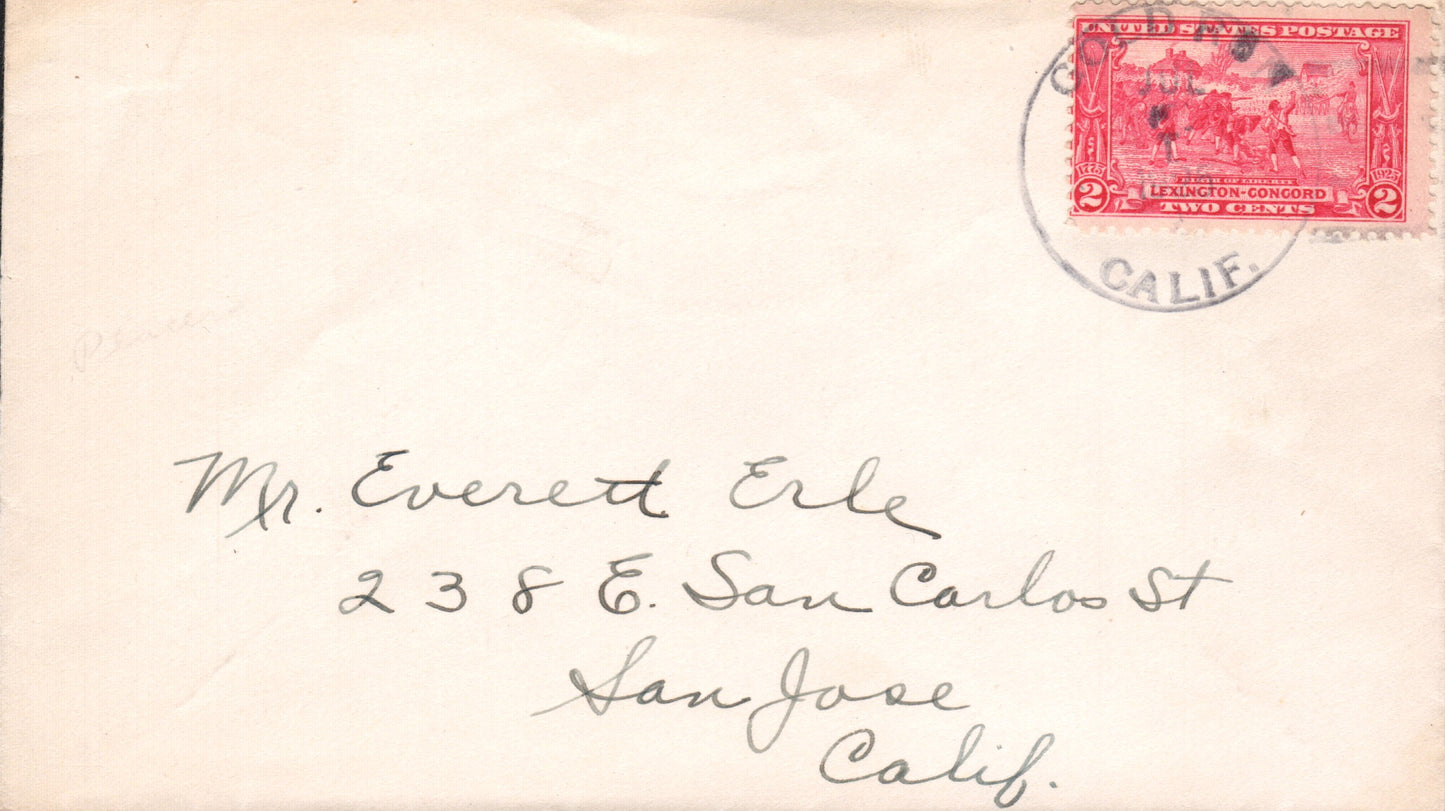 UNITED STATES POSTAGE
JUL
1775
1925
BIRTH OF LIBERTY
2 LEXINGTON-CONCORD 2
TWO CENTS
CALIF.
Mr. Everett Erle
238 E. San Carlos St
San Jose
Calif.